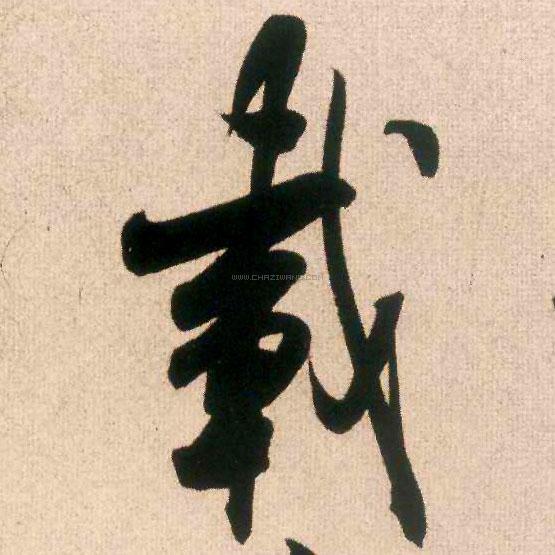 載
WWW.CHAZIWANG.COM